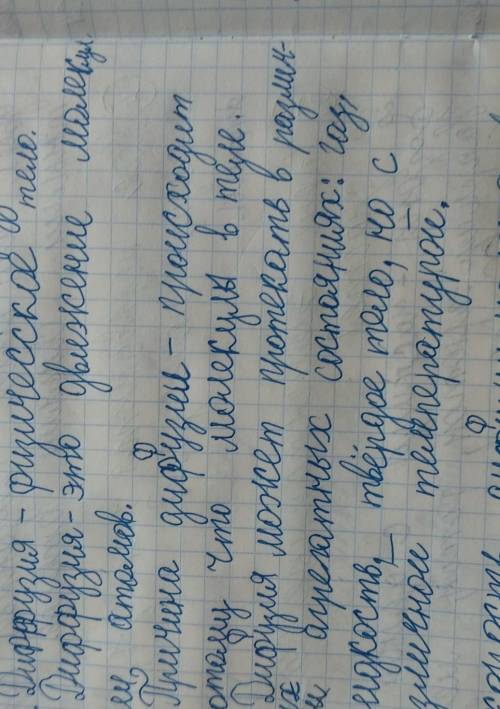 Диффузия - физическое тело.
ф
Диффузия - это движение молекул
и, атомов.
ф
Причина дифузии - происходит
отому что молекулы в теле.
ф
Дифузия может протекать в различ-
ых агрегатных состояниях: газ,
идкость, твёрдое тело, но с
зличной температурой.
ф